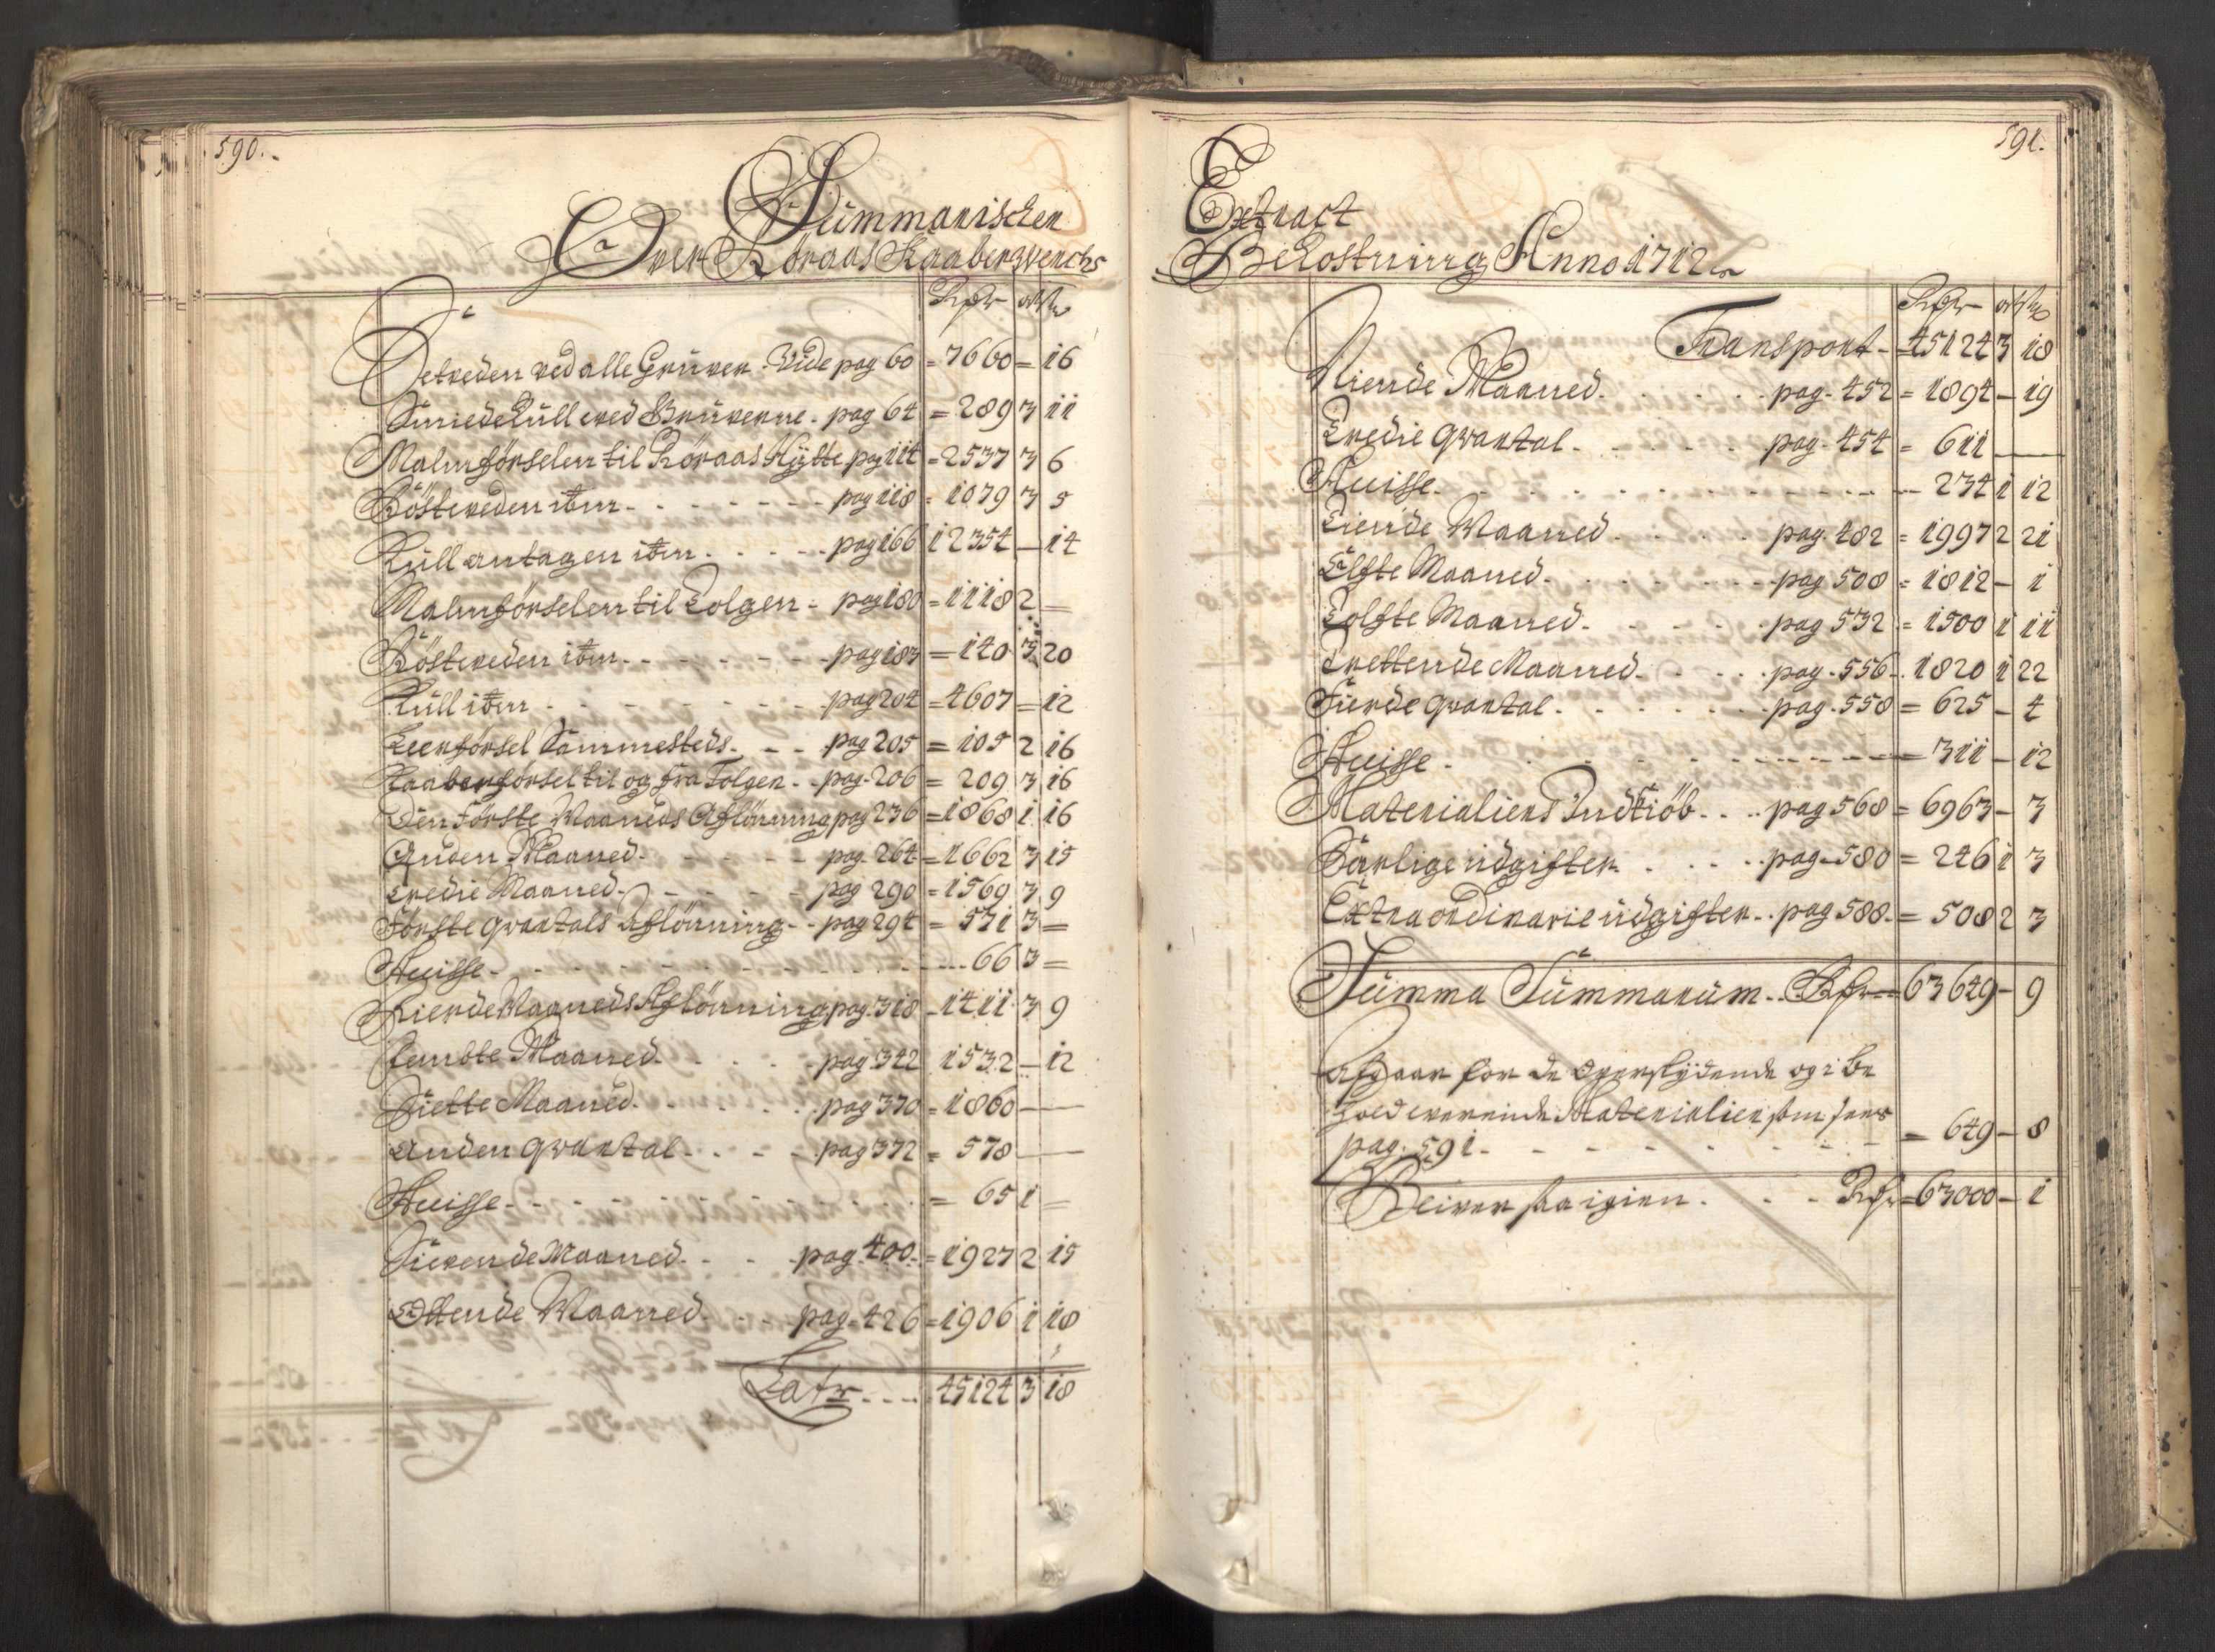 590.
Summarischer
Over Röraas Kaaberwercks
Rdr ort ß
Setveden ved alle Gruver. Vide pag 60 = 7660 = 16
Smiedekull ved Gruverne. pag 64 = 289 3 11
Malmförselen til Röraas Hytte pag 114 = 2537 3 6
Rösteveden itm - - - - - - pag 118 = 1079 3 5
Kull antagen itm - - - - pag 166 12354 — 14
Malmförselen til Tolgen - pag 180 = 1118 2 =
Rösteveden itm - - - - - - pag 183 = 140 3 20
Kull itm - - - - - - - pag 204 = 4607 = 12
Leerförsel Sammesteds - - - pag 205 = 105 2 16
Kaaberförsel til og fra Tolgen - - pag. 206 = 209 3 16
Den Förste Maaneds Aflönning pag 236 = 1868 1 16
Anden Maaned - - - - - pag. 264 = 1662 3 15
Tredie Maaned - - - - - pag 290 = 1569 3 9
Förste qvartals Aflönning - - pag 294 = 571 3 =
Accisse - - - - - - - - - 66 3 =
Fierde Maaneds Aflönning pag. 318 - 1411 3 9
Femdte Maaned - - - - pag. 342 1532 — 12
Siette Maaned - - - - - pag 370 = 1860 —
Anden qvartal - - - - pag 372 = 578 —
Accisse - - - - - - - - = 65 1 =
Sivende Maaned - - - pag. 400. = 1927 2 15
Ottende Maaned - - - pag. 426 = 1906 1 18
Latr - - - - 45124 3 18
591.
Extract
Bekostning Anno 1712
Rdr ort ß
Transport - = 45124 3 18
Niende Maaned. - - - - pag. 452 = 1894 — 19
Tredie qvartal. - - - - - pag. 454 = 611 —
Accisse. - - - - - - - - - 234 1 12
Tiende Maaned. - - - - pag. 482 = 1997 2 21
Elfte Maaned. - - - - - - pag 508 = 1812 — 1
Tolfte Maaned. - - - - - pag 532 = 1500 1 11
Trettende Maaned. - - - - pag. 556 - 1820 1 22
Fierde qvartal. - - - - - pag. 558 = 625 — 4
Accisse - - - - - - - - = 311 — 12
Materialiers Indkiöb - - - pag 568 = 6963 — 3
Särlige udgifter. - - - - pag. 580 = 246 1 3
Extraordinarie udgifter. - pag 588. = 508 2 3
Summa Summarum. - Rdr = 63649 — 9
Afgaar for de Overskydende og i be
hold værende Materialier som sees
pag. 591 - - - - - - - = 649 — 8
Bliver saa igien. - - - Rdr = 63000 — 1